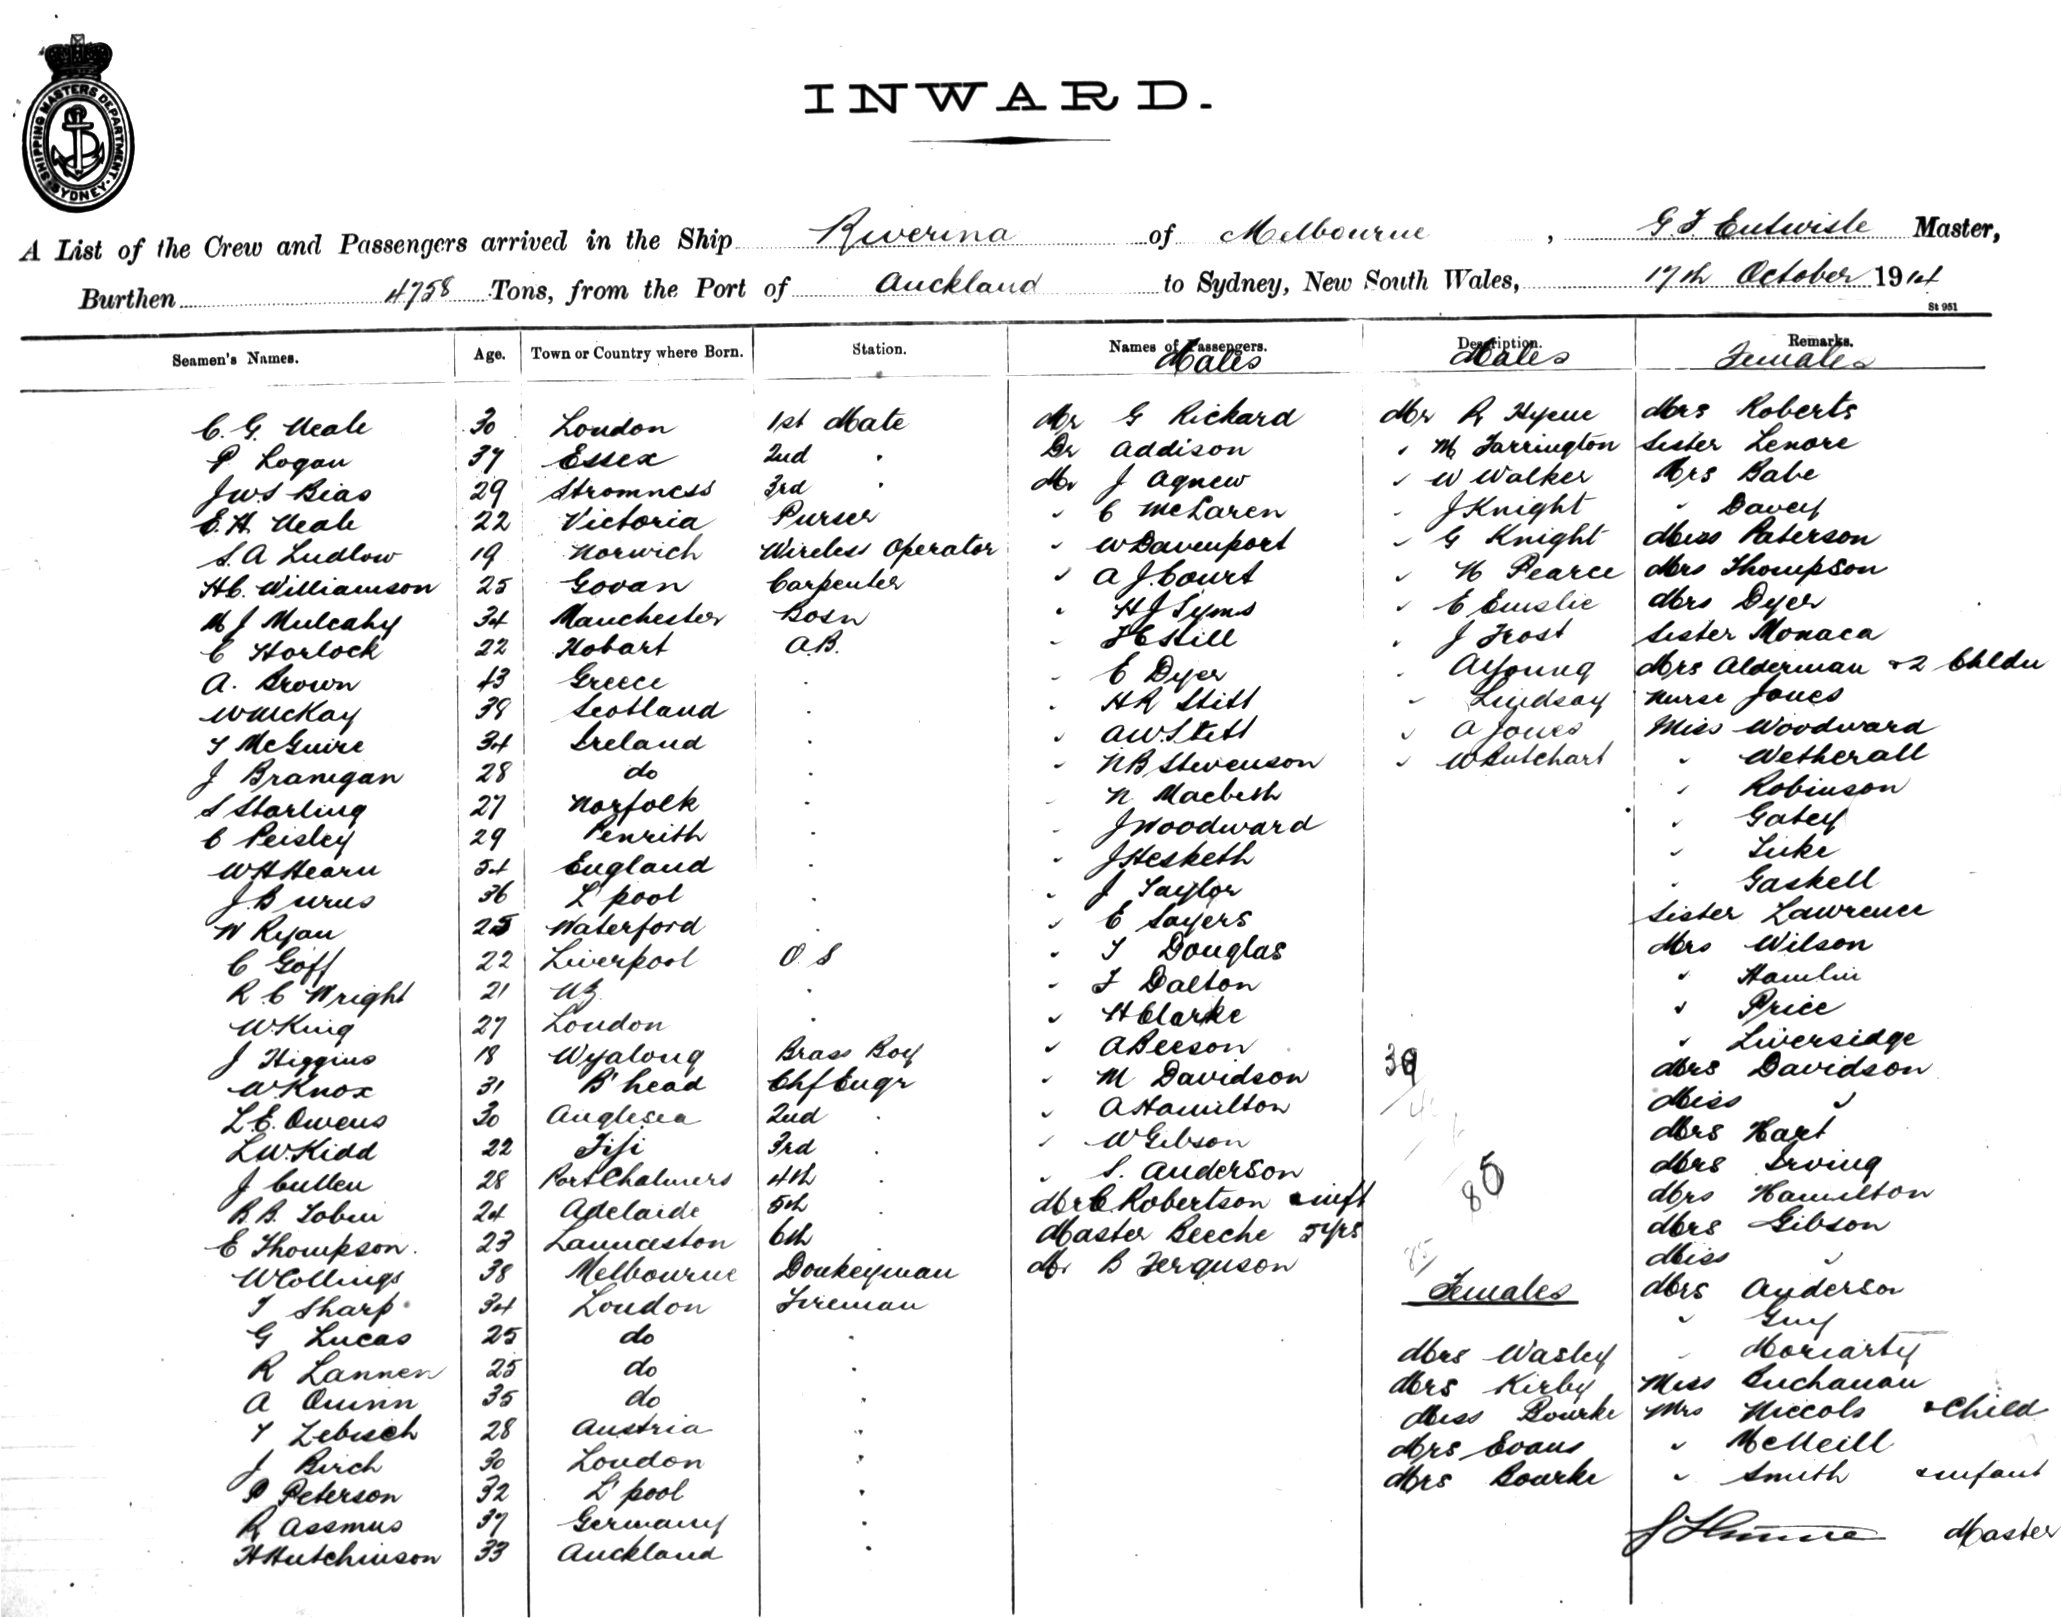 SHIPPING MASTERS DEPARTMENT. SYDNEY
INWARD.
A List of the Crew and Passengers arrived in the Ship Riverina of Melbourne, G. F. Entwisle Master,
Burthen 4758 Tons, from the Port of Auckland to Sydney, New South Wales, 17th October 1914
St 951
Seamen's Names. Age. Town or Country where Born. Station. Names of Passengers. Description. Remarks.
Males Males Females
C. G. Neale 30 London 1st Mate Mr G Rickard Mr R Hyene Mrs Roberts
P Logan 37 Essex 2nd " Dr Addison " M Farrington Sister Lenore
J.W.S Bias 29 Stromness 3rd " Mr J Agnew " W Walker Mrs Babe
E. H. Neale 22 Victoria Purser " C McLaren " J Knight " Davey
S. A Ludlow 19 Norwich Wireless Operator " W Davenport " G Knight Miss Paterson
H C. Williamson 25 Govan Carpenter " A J. Court " H Pearce Mrs Thompson
M J Mulcahy 34 Manchester Bosn " H J Syms " E Emslie Mrs Dyer
C Horlock 22 Hobart A.B. " F C Hill " J Frost Sister Monaca
A. Brown 43 Greece " " E Dyer " A Young Mrs Alderman & 2 Childn
W McKay 38 Scotland " " H R Stitt " Lindsay Nurse Jones
T McGuire 34 Ireland " " A W. Stitt " A Jones Miss Woodward
J Branigan 28 do " " N B Stevenson " W Butchart " Wetherall
S Starling 27 Norfolk " " N Macbeth " Robinson
C Peisley 29 Penrith " " J Woodward " Gatey
W H Hearn 54 England " " J Hesketh " Luke
J. Burns 36 L'pool " " J Taylor " Gaskell
W Ryan 25 Waterford " " E Sayers Sister Lawrence
C Goff 22 Liverpool O S " T Douglas Mrs Wilson
R. C Wright 21 NZ " " F Dalton " Hamlin
W. King 27 London " " H Clarke " Price
J Higgins 18 Wyalong Brass Boy " A Beeson 39 " Liversidge
W Knox 31 B'head Chf Engr " M Davidson Mrs Davidson
L. E. Owens 30 Anglesea 2nd " " A Hamilton Miss "
L W. Kidd 22 Fiji 3rd " " W Gibson Mrs Hart
J Cullen 28 Port Chalmers 4th " " S. Anderson 85 Mrs Irving
R. B. Tobin 24 Adelaide 5th " Mr C Robertson & inft Mrs Hamilton
E Thompson. 23 Launceston 6th " Master Beeche 5 yrs Mrs Gibson
W Collings 38 Melbourne Donkeyman Mr B Ferguson 85 Miss "
T Sharp 34 London Fireman Females Mrs Anderson
G Lucas 25 do " " Guy
R Lannen 25 do " Mrs Wasley " Moriarty
A Quinn 35 do " Mrs Kirby Miss Buchanan
T Zebisch 28 Austria " Miss Bourke Mrs Niccols & Child
J Birch 30 London " Mrs Evans " McNeill
P Peterson 32 L'pool " Mrs Bourke " Smith & infant
R Assmus 37 Germany " Master
H Hutchinson 33 Auckland "